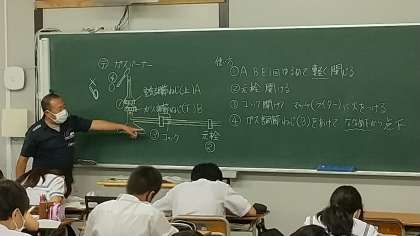 ガスバーナー
④
空気調節ねじ(上)A
②
ガス調節ねじ(下)B
③ コック
元栓
②
使い方
① A,Bを1回ゆるめて軽く閉じる
② 元栓 開ける
③ コック開け マッチ(ライター)に火をつける
④ ガス調節ねじ(B)をあけて ななめ下から点火